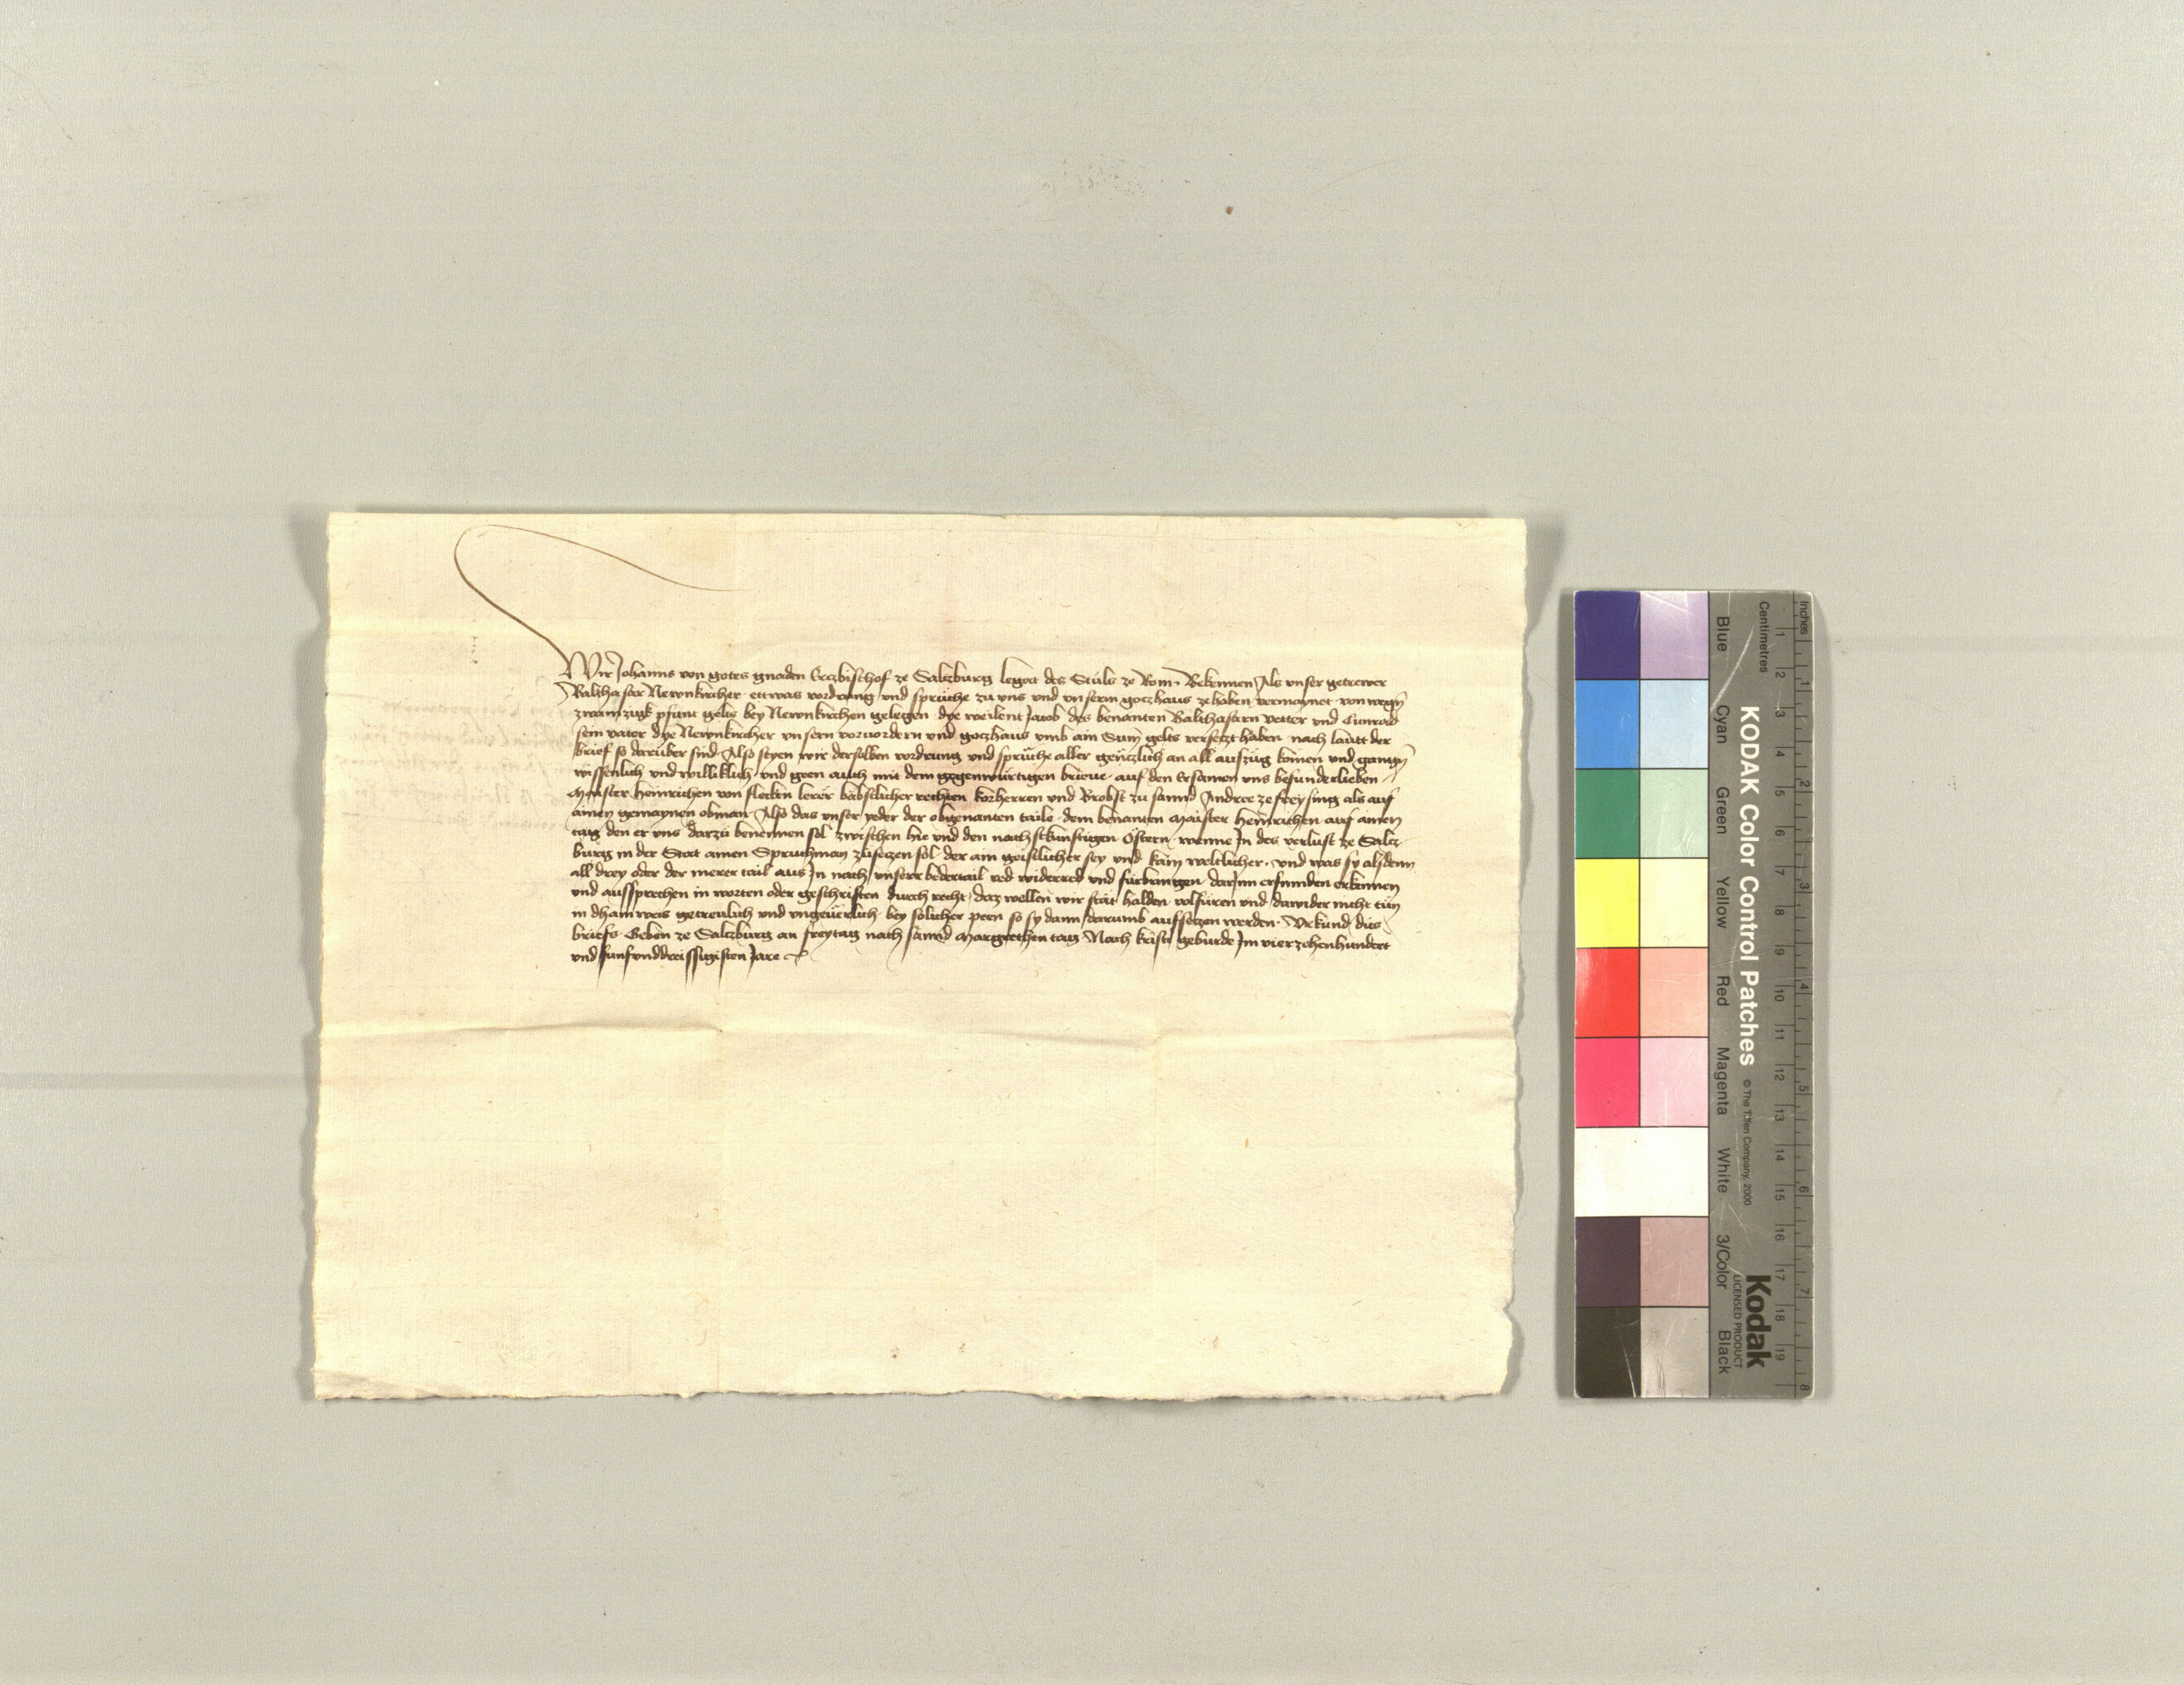 Wir Johanns von gotes gnaden Erczbischof ze Salczburg legat des Stuls ze Rom. Bekennen Als vnser getrewer
Balthasar Newnkircher ettwas vordrung vnd sprüche zu vns vnd vnserm goczhaus ze haben vermaynet von wegn̄
zwainzigk pfunt gelts bey Newnkirchen gelegen dye weilent Jacob des benanten Balthasarn vetter vnd Cunrad
sein vater dye Newnkircher vnsern voruordern vnd goczhaus vmb ain Sum̄ gelts versetzt haben nach lautt der
brief so darüber sind. Also wir derselben vordrung vnd sprüche aller genczlich an all auszüg komen vnd gangn̄
wissenlich vnd williklich vnd geen auch mit dem gegenwürtigen brieue auf den Ersamen vns besunderlieben
Maister Heinrichen von fleckn lerer bebstlicher rechten korherren vnd Brobst zu sannd Andree ze freysing als auf
ainen gemaynen obman. Also das vnser yeder der obgenanten taile dem benanten Maister Heinrichen auf ainen
tag den er vns darzu benennen sol zwischen hie vnd den nachstkunftigen Ostern wenne In des verlust ze Salcz
burg in der Stat ainen Spruchman zusetzen sol der ain geistlicher sey vnd kain weltlicher. vnd was sy alsdenn
all drey oder der merer tail aus In nach vnserr bedertail red widerred vnd fürbringen darInn erfunden erkennen
vnd aussprechen in worten oder geschriften durch recht daz wellen wir stät halden volfüren vnd dawider nicht tun
in dhain weis getreulich vnd vngeuerlich bey solicher peen so sy dann darumb aufsetzen werden. Vrkund dits
briefs. Geben ze Salczburg an freytag nach sannd Margrethen tag Nach kristi geburde Im vierzehenhundert
vnd funfvnddreissigisten Jare
KODAK Color Control Patches © The Tiffen Company, 2000
Kodak
LICENSED PRODUCT
Blue Cyan Green Yellow Red Magenta White 3/Color Black
Inches 1 2 3 4 5 6 7 8
Centimetres 1 2 3 4 5 6 7 8 9 10 11 12 13 14 15 16 17 18 19